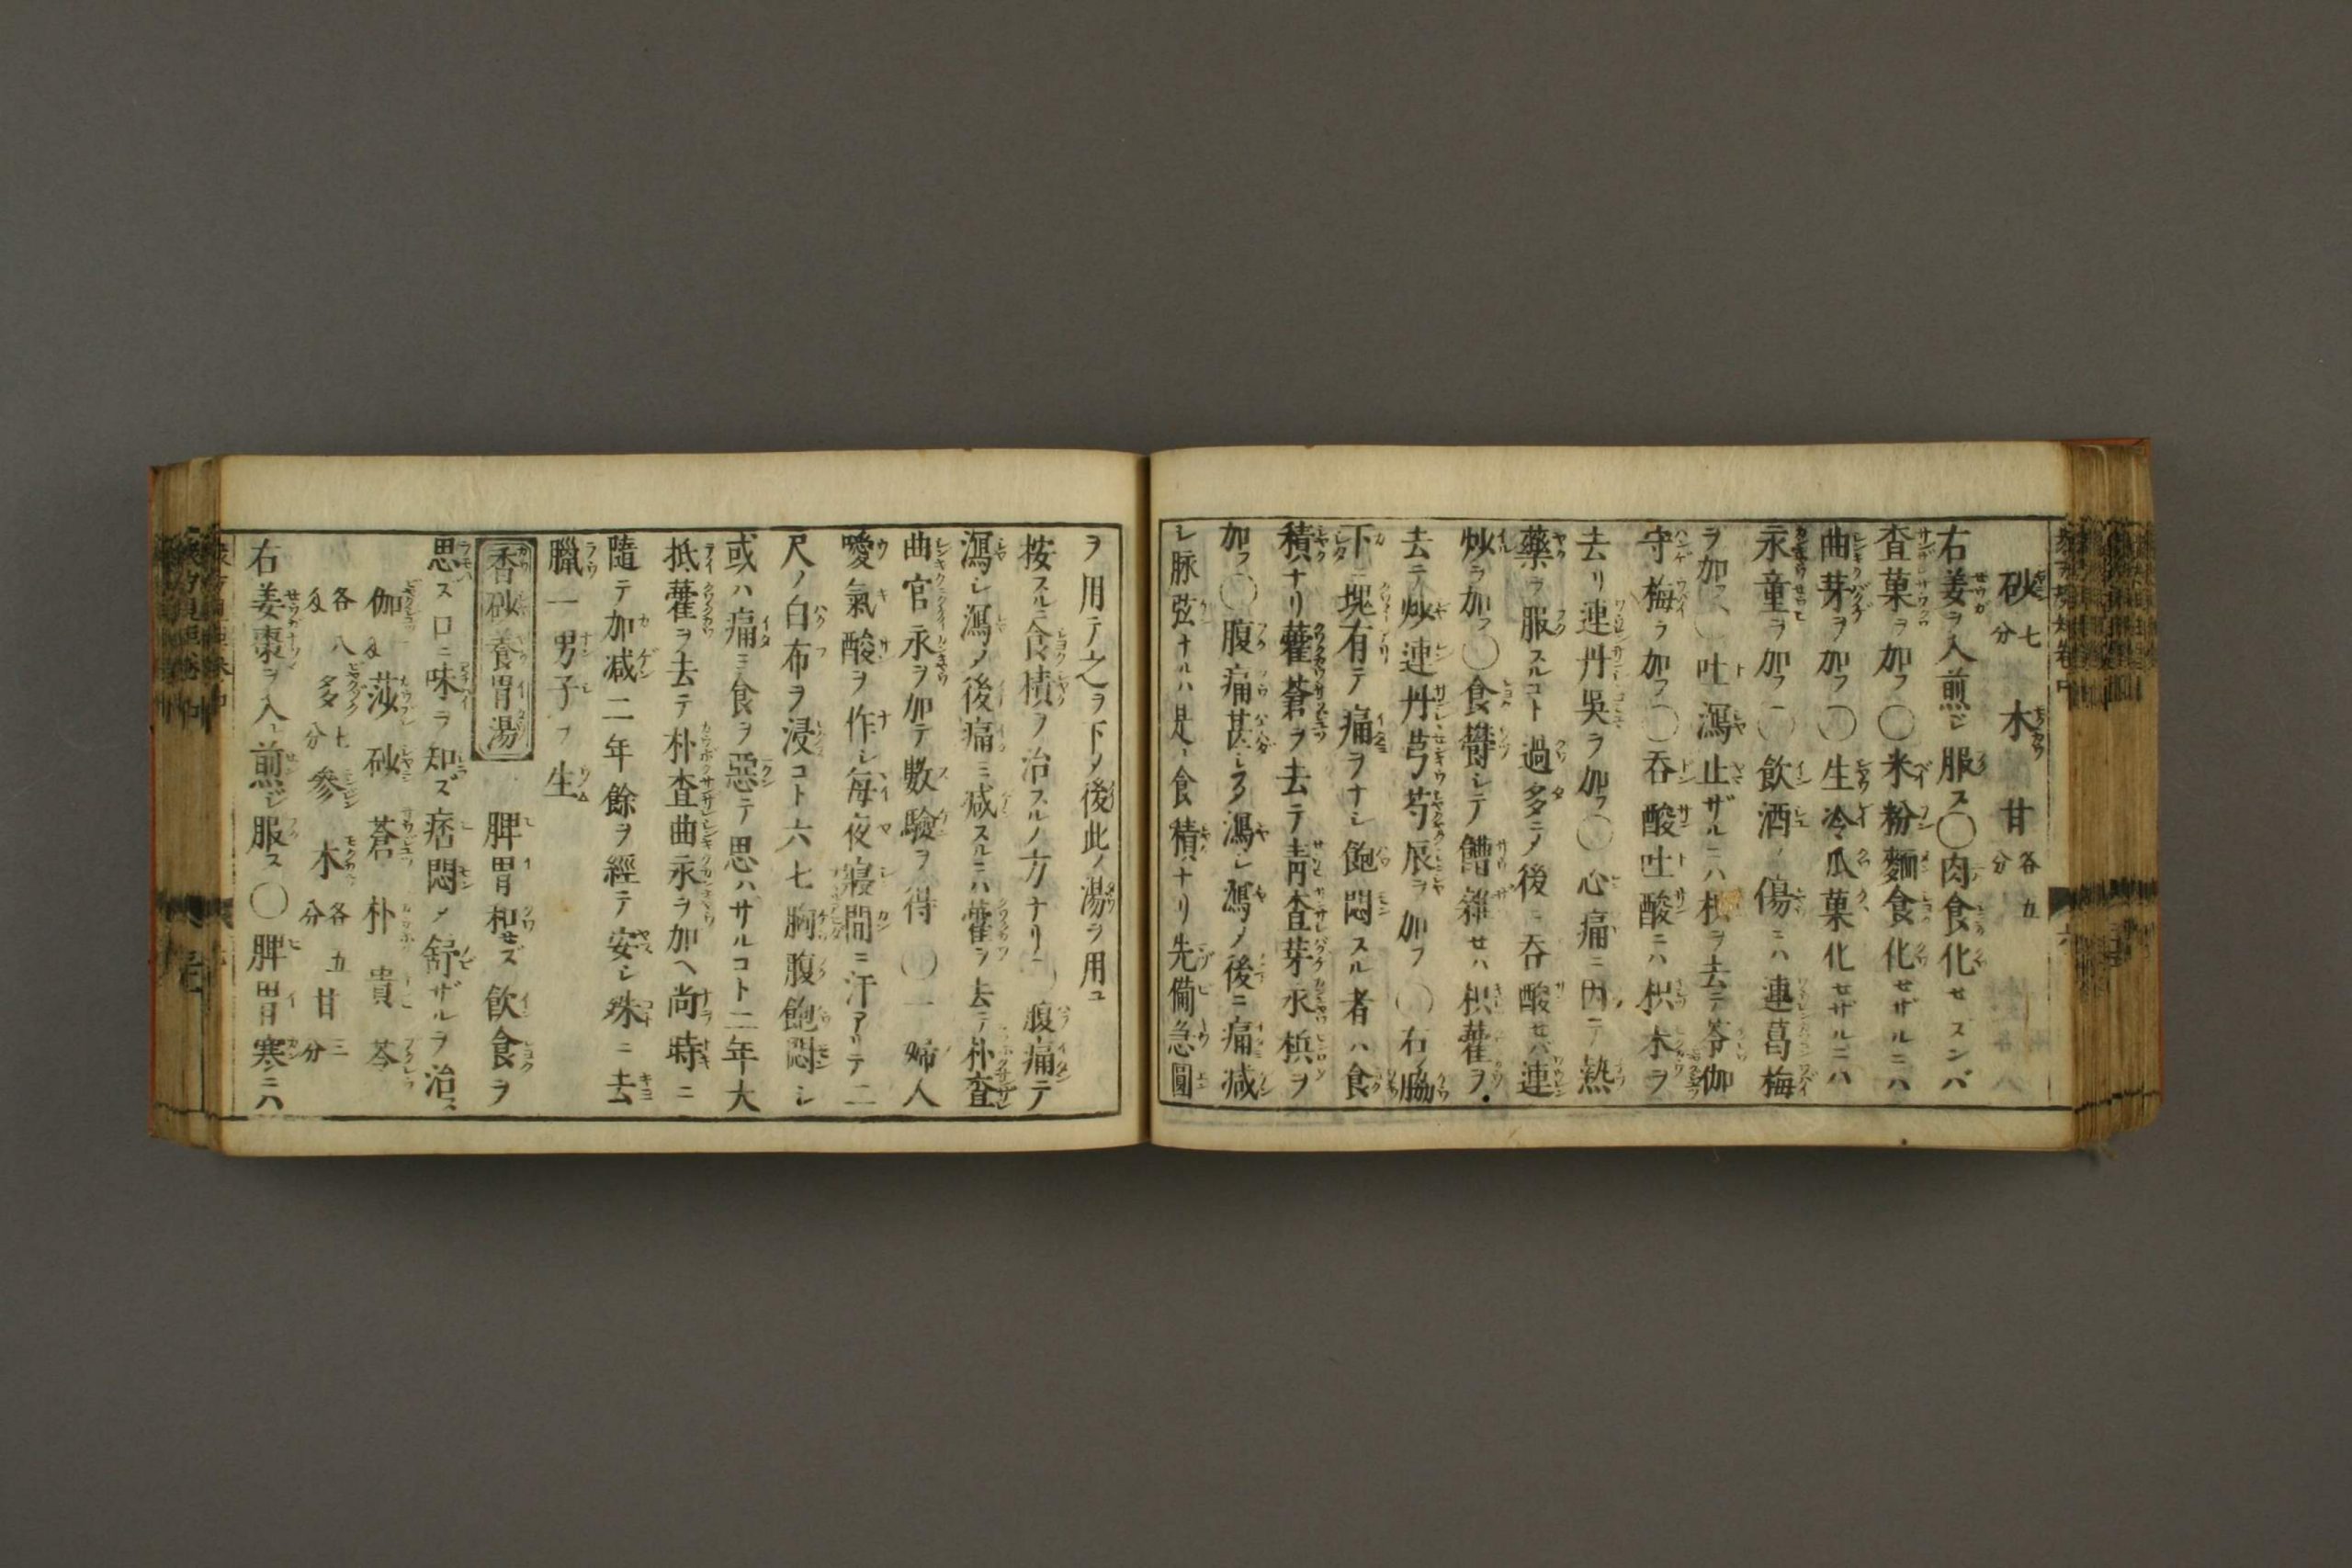 砂七分 木 甘各五分
右姜ヲ入煎ジ服ス〇肉食化セズンバ
査菓ヲ加フ〇米粉麵食化セザルニハ
曲芽ヲ加フ〇生冷瓜菓化セザルニハ
永童ヲ加フ〇飲酒ノ傷ニハ連葛梅
ヲ加フ〇吐瀉止ザルニハ枳ヲ去テ苓伽
守梅ヲ加フ〇吞酸吐酸ニハ枳木ヲ
去リ連丹吳ヲ加フ〇心痛ニ因テ熱
藥ヲ服スルコト過多ニノ後ニ吞酸セバ連
炒ヲ加フ〇食欝シテ饋雜セハ枳藿ヲ
去テ炒連丹芎芍辰ヲ加フ〇右脇
下ニ塊有テ痛ヲナシ飽悶スル者ハ食
積ナリ藿蒼ヲ去テ靑査芽永梹ヲ
加フ〇腹痛甚シク瀉シ瀉ノ後ニ痛減
シ脉弦ナルハ是レ食積ナリ先備急圓
ヲ用テ之ヲ下ノ後此ノ湯ヲ用ユ
按スルニ食積ヲ治スルノ方ナリ〇腹痛テ
瀉シ瀉ノ後痛ミ减スルニハ藿ヲ去テ朴査
曲官永ヲ加テ數驗ヲ得〇一婦人
噯氣酸ヲ作シ每夜寢間ニ汗アリテ二
尺ノ白布ヲ浸コト六七胸腹飽悶シ
或ハ痛ミ食ヲ惡テ思ハサルコト二年大
抵藿ヲ去テ朴査曲永ヲ加ヘ尚時ニ
隨テ加减二年餘ヲ經テ安シ殊ニ去
臘一男子ヲ生ム
香砂養胃湯 脾胃和セズ飲食ヲ
思ズ口ニ味ヲ知ズ痞悶ノ舒ザルヲ治ス
伽 莎 砂 蒼 朴 貴 苓
各八分 多七分 參 木各五分 甘三分
右姜棗ヲ入レ煎ジ服ス〇脾胃寒ニハ